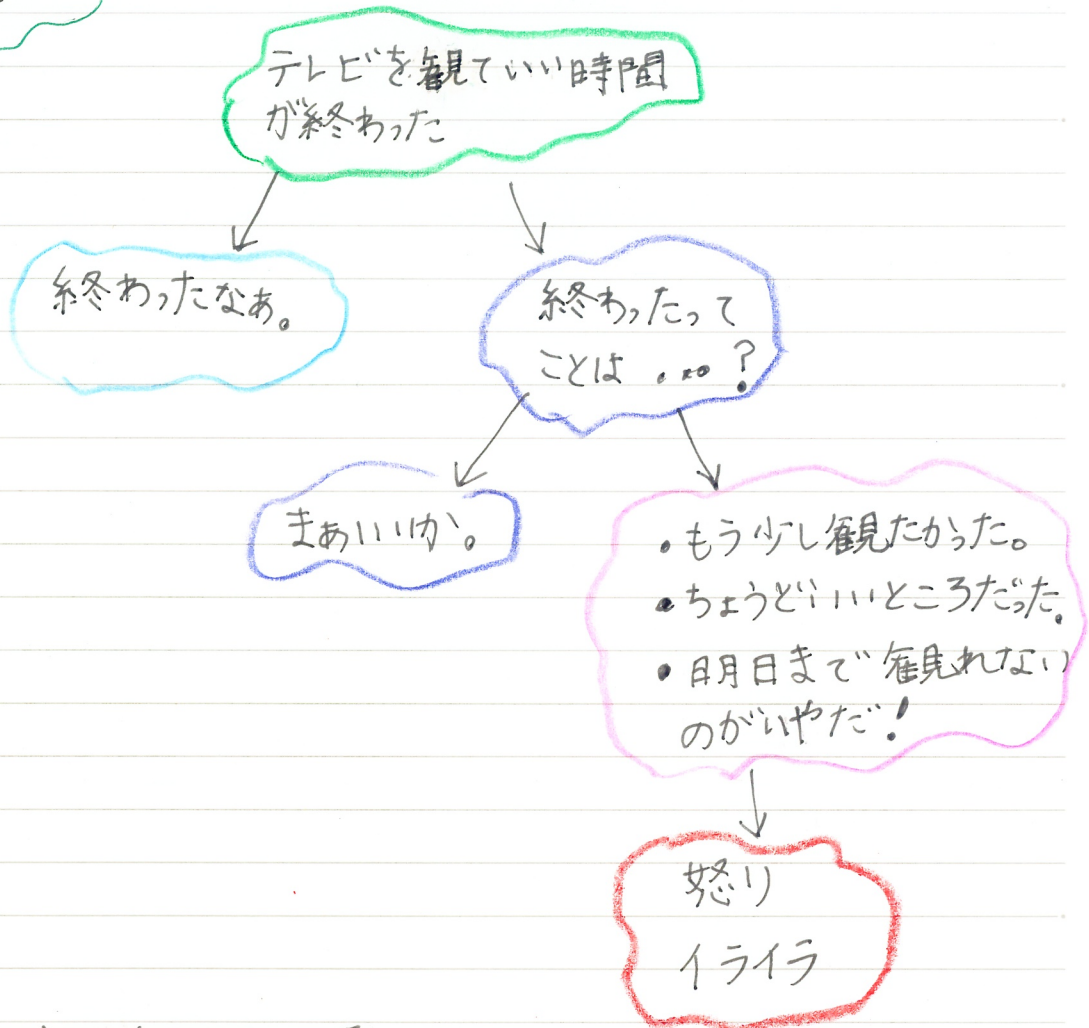 テレビを観ていい時間
が終わった
終わったなぁ。
終わったって
ことは・・・?
まぁいいか。
・もう少し観たかった。
・ちょうどいいところだった。
・明日まで観れない
のがいやだ!
怒り
イライラ